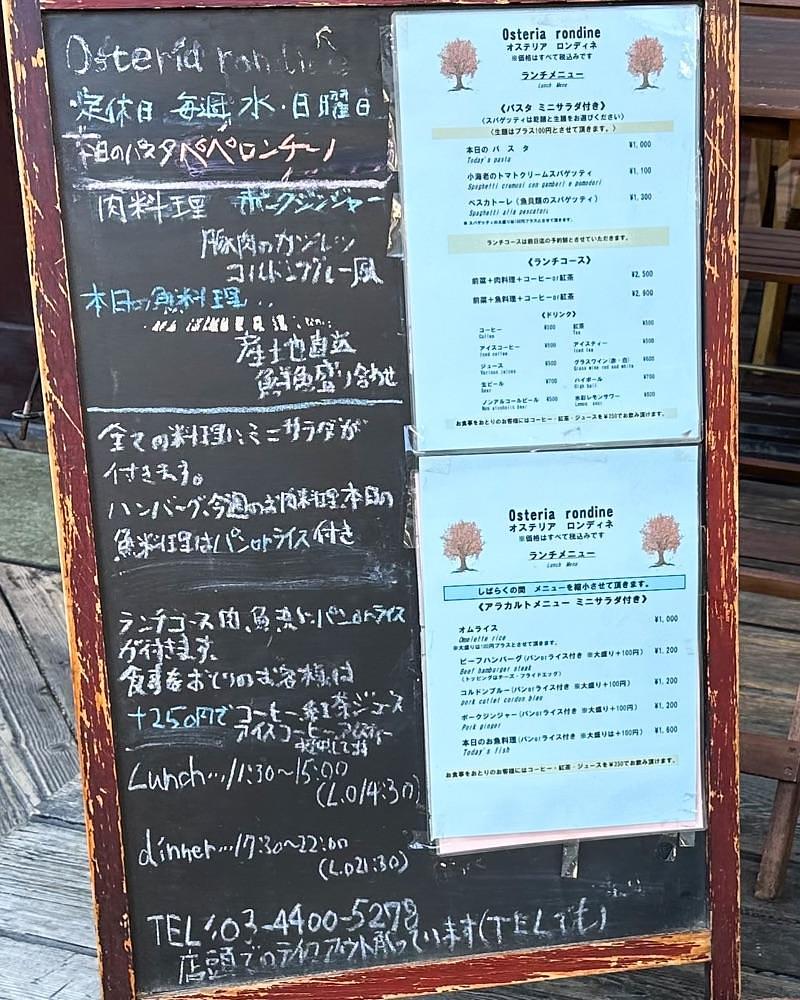 Osteria rondine
定休日 毎週 水・日曜日
本日のパスタペペロンチーノ
肉料理 ポークジンジャー
豚肉のカツレツ
コルドンブルー風
本日の魚料理..
産地直送
鮮魚盛り合わせ
全ての料理にミニサラダが
付きます。
ハンバーグ、今週のお肉料理、本日の
魚料理はパンorライス付き
ランチコース肉、魚
パンorライス
が付きます。
食事をおとりのお客様は
+250円でコーヒー、紅茶、ジュース
アイスコーヒー、アイスティー
Lunch…11:30~15:00
(L.O14:30)
dinner…17:30~22:00
(L.O21:30)
TEL:03-4400-5278
店頭でのテイクアウト承っています(TELでも)
Osteria rondine
オステリア ロンディネ
※価格はすべて税込みです
ランチメニュー
Lunch Menu
《パスタ ミニサラダ付き》
(スパゲッティは乾麺と生麺をお選びください)
(生麺はプラス100円とさせて頂きます。)
本日のパスタ ¥1,000
Today's pasta
小海老のトマトクリームスパゲッティ ¥1,100
Spaghetti cremosi con gamberi e pomodori
ペスカトーレ(魚貝類のスパゲッティ) ¥1,300
Spaghetti alla pescatori
※スパゲッティの大盛りは100円プラスとさせて頂きます。
ランチコースは前日迄の予約制とさせていただきます。
《ランチコース》
前菜+肉料理+コーヒーor紅茶 ¥2,500
前菜+魚料理+コーヒーor紅茶 ¥2,900
《ドリンク》
コーヒー ¥500 紅茶 ¥500
Coffee Tea
アイスコーヒー ¥500 アイスティー ¥500
Iced coffee Iced tea
ジュース ¥500 グラスワイン(赤・白) ¥600
Various juices Glass wine red and white
生ビール ¥700 ハイボール ¥700
Beer High ball
ノンアルコールビール ¥500 氷彩レモンサワー ¥600
Non alcoholic beer Lemon sour
お食事をおとりのお客様にはコーヒー・紅茶・ジュースを¥250でお飲み頂けます。
Osteria rondine
オステリア ロンディネ
※価格はすべて税込みです
ランチメニュー
Lunch Menu
しばらくの間 メニューを縮小させて頂きます。
《アラカルトメニュー ミニサラダ付き》
オムライス ¥1,000
Omelette rice
※大盛りは100円プラスとさせて頂きます。
ビーフハンバーグ(パンorライス付き ※大盛り+100円) ¥1,200
Beef hamburg steak
(トッピングはチーズ・フライドエッグ)
コルドンブルー(パンorライス付き ※大盛り+100円) ¥1,200
pork cutlet cordon bleu
ポークジンジャー(パンorライス付き ※大盛り+100円) ¥1,200
Pork ginger
本日のお魚料理(パンorライス付き ※大盛りは+100円) ¥1,600
Today's fish
お食事をおとりのお客様にはコーヒー・紅茶・ジュースを¥250でお飲み頂けます。